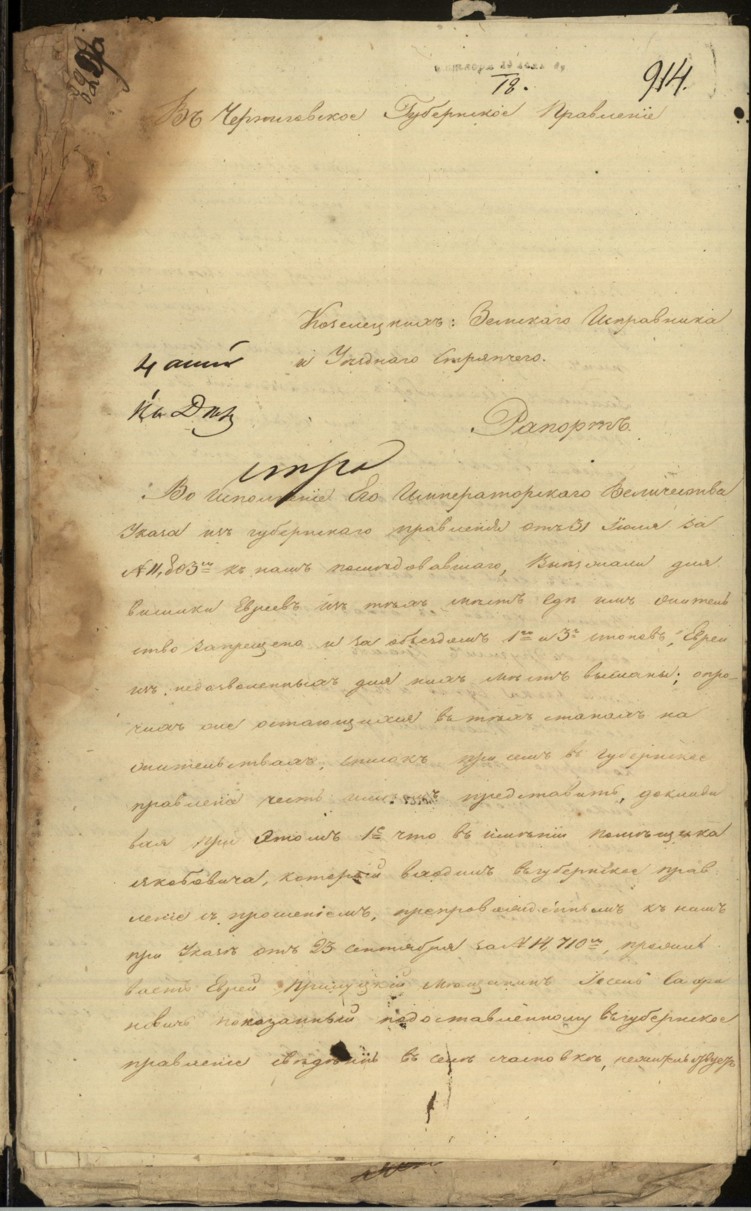 914.
18.
Въ Черниговское Губернское Правленіе
Козелецкихъ: Земскаго Исправника
и Уезднаго Стряпчего.
4 стол
Рапортъ
Во исполненіе Его Императорскаго Величества
Указа изъ губернскаго правленія отъ 31 Июля за
№ 11,803м къ намъ последовавшаго, выезжали для
висилки Евреевъ изъ техъ местъ где имъ жителъ
ство запрещено и за объездомъ 1го и 3го становъ, Евреи
изъ недозволенныхъ для нихъ местъ высланы; о про-
чихъ же остающихся въ техъ станахъ на
жителъствахъ, списокъ при семъ въ губернское
правленіе честь имеемъ представить, доклади
вая при этомъ 1е что въ именіи помещика
Якобовича, который входилъ въ губернское прав
леніе съ прошеніемъ, препровожденнымъ къ намъ
при Указе отъ 23 Сентября за № 14,710м, прожив
Еврей Прилуцкій мещанинъ
новичъ показанный по доставленному въ губернское
правленіе сведенію въ селе